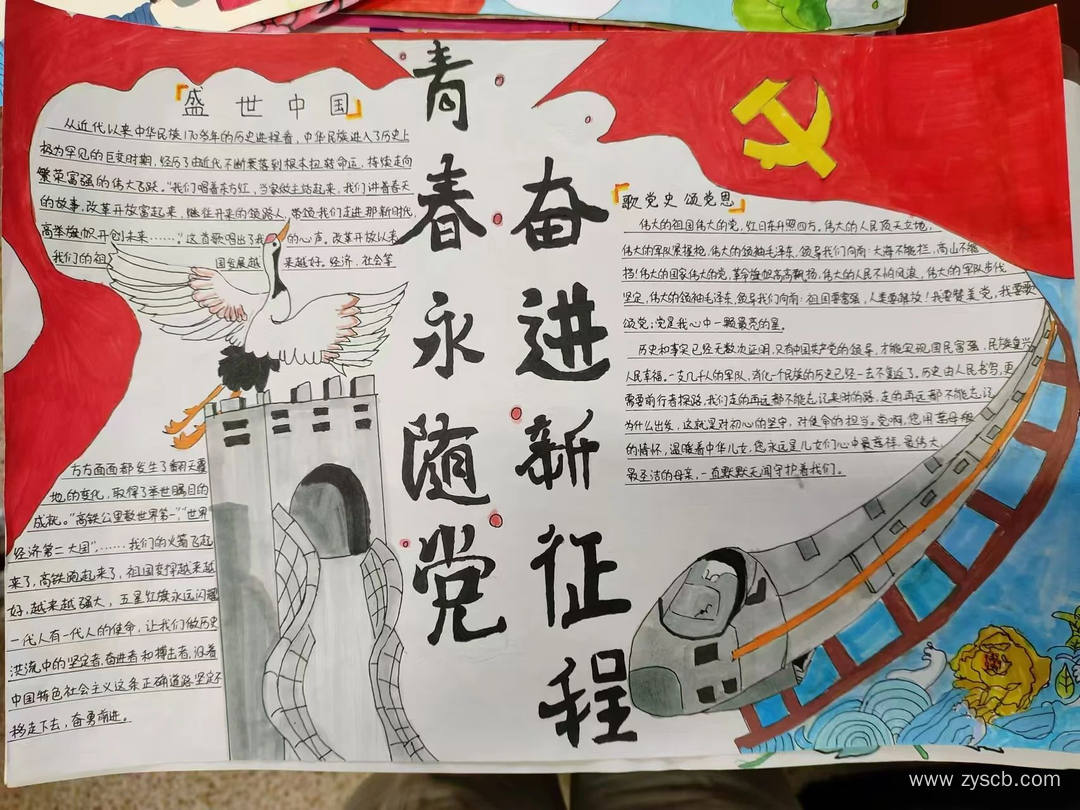 「盛世中国」
从近代以来中华民族170多年的历史进程看,中华民族进入了历史上
极为罕见的巨变时期,经历了由近代不断衰落到根本扭转命运,持续走向
繁荣富强的伟大飞跃。"我们唱着东方红,当家做主站起来,我们讲着春天
的故事,改革开放富起来,继往开来的领路人,带领我们走进那新时代,
高举旗帜开创未来……"这首歌唱出了我们的心声。改革开放以来
我们的祖国发展越来越好。经济,社会等
方方面面都发生了翻天覆
地的变化,取得了举世瞩目的
成就。"高铁公里数世界第一","世界
经济第二大国",……我们的火箭飞起
来了,高铁跑起来了,祖国变得越来越
好,越来越强大,五星红旗永远闪耀
一代人有一代人的使命,让我们做历史
洪流中的坚定者,奋进者和搏击者,沿着
中国特色社会主义这条正确道路坚定不
移走下去,奋勇前进。
青春永随党
奋进新征程
「歌党史 颂党恩」
伟大的祖国伟大的党,红日东升照四方,伟大的人民顶天立地,
伟大的军队紧握枪,伟大的领袖毛泽东,领导我们向前:大海不能拦,高山不能
挡!伟大的国家伟大的党,革命旗帜高高飘扬,伟大的人民不怕风浪,伟大的军队步伐
坚定,伟大的领袖毛泽东,领导我们向前:祖国要富强,人类要解放!我要赞美党,我要歌
颂党;党是我心中一颗最亮的星。
历史和事实已经无数次证明,只有中国共产党的领导,才能实现国民富强,民族复兴
人民幸福。一支几千人的军队,消化一个民族的历史已经一去不复返了。历史由人民书写,更
需要前行者探路,我们走的再远都不能忘记来时的路,走的再远都不能忘记
为什么出发,这就是对初心的坚守,对使命的担当。党啊,您用慈母般
的情怀,温暖着中华儿女,您永远是儿女们心中最慈祥,最伟大,
最圣洁的母亲,一直默默无闻守护着我们。
www.zyscb.com